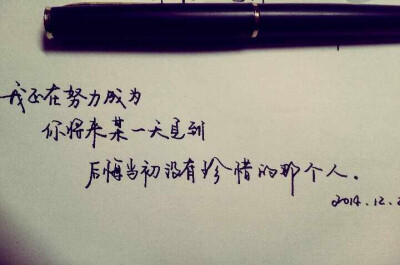 我还在努力成为
你将来某一天见到
后悔当初没有珍惜的那个人。
2014.12.